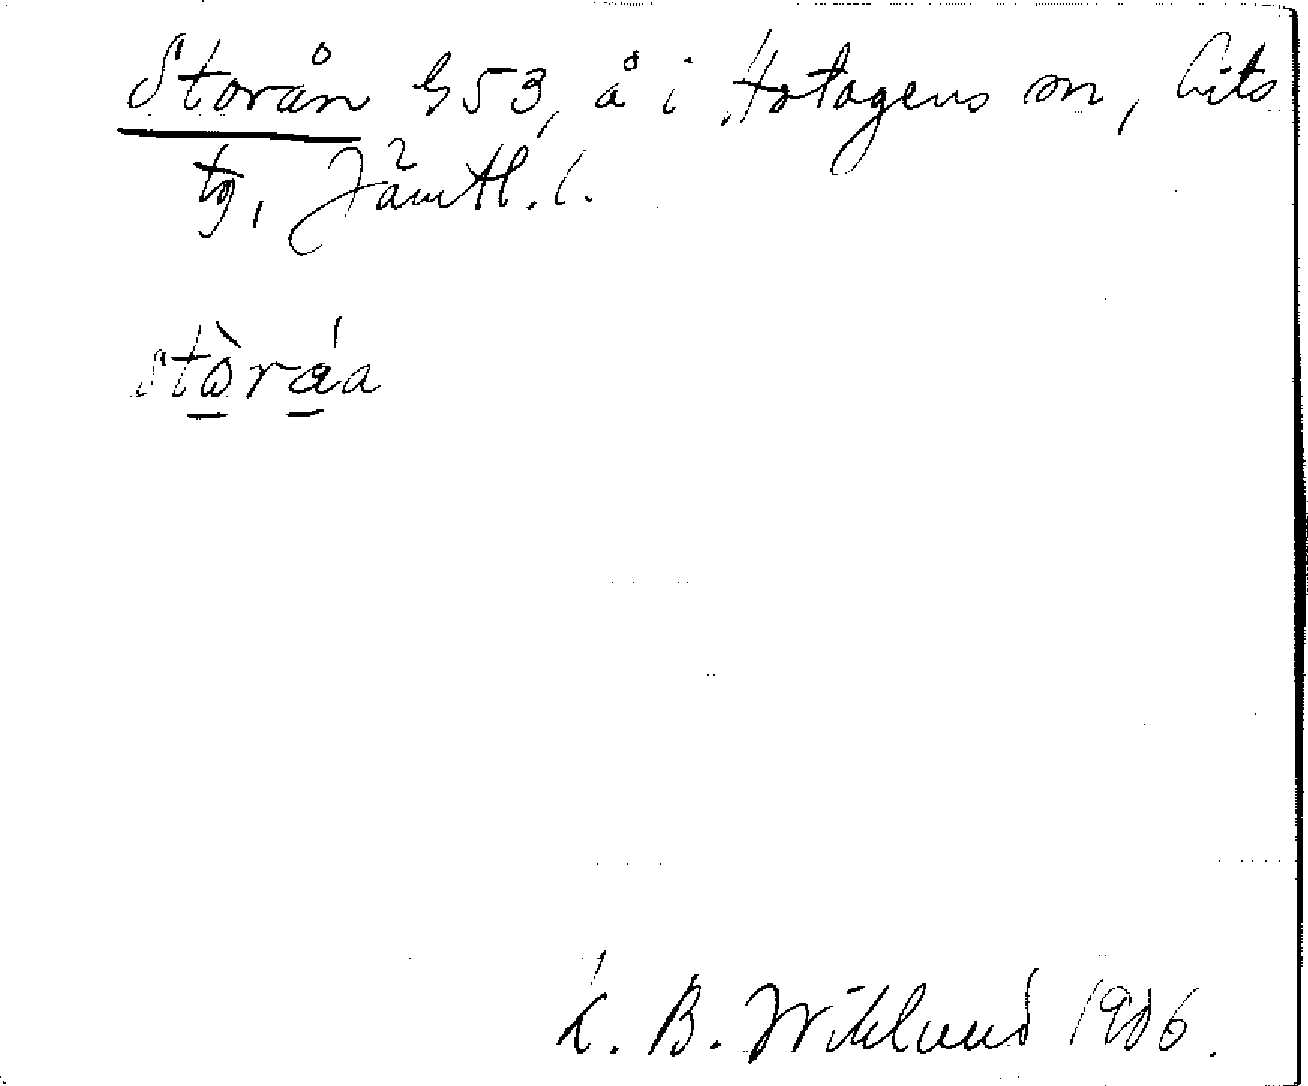 Storån G53, å i Hotagens sn, Lits
tg, Jämtl. l.
stòráa
K. B. Wiklund 1906.